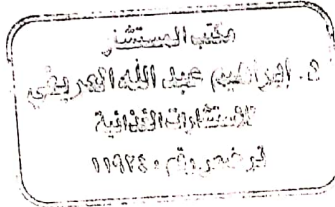 مكتب المستشار
د. إبراهيم عبد الله العريفي
للاستشارات القانونية
ترخيص رقم